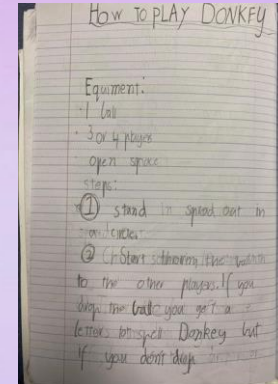 HOW TO PLAY DONKEY
Equiment:
1 ball
3 or 4 player
open space
steps:
① stand in spread out in
②
to the other players. If you
drop the ball you get a
letters to spell Donkey but
if you don't drop